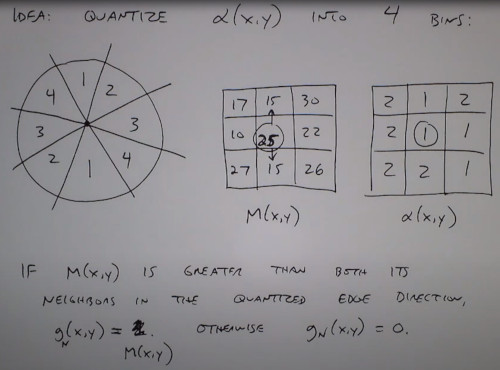 IDEA: QUANTIZE α(x,y) INTO 4 BINS:
1
4 2
3 3
2 4
1
17 15 30
10 25 22
27 15 26
M(x,y)
2 1 2
2 1 1
2 2 1
α(x,y)
IF M(x,y) IS GREATER THAN BOTH ITS
NEIGHBORS IN THE QUANTIZED EDGE DIRECTION,
gN(x,y) = . OTHERWISE gN(x,y) = 0.
M(x,y)